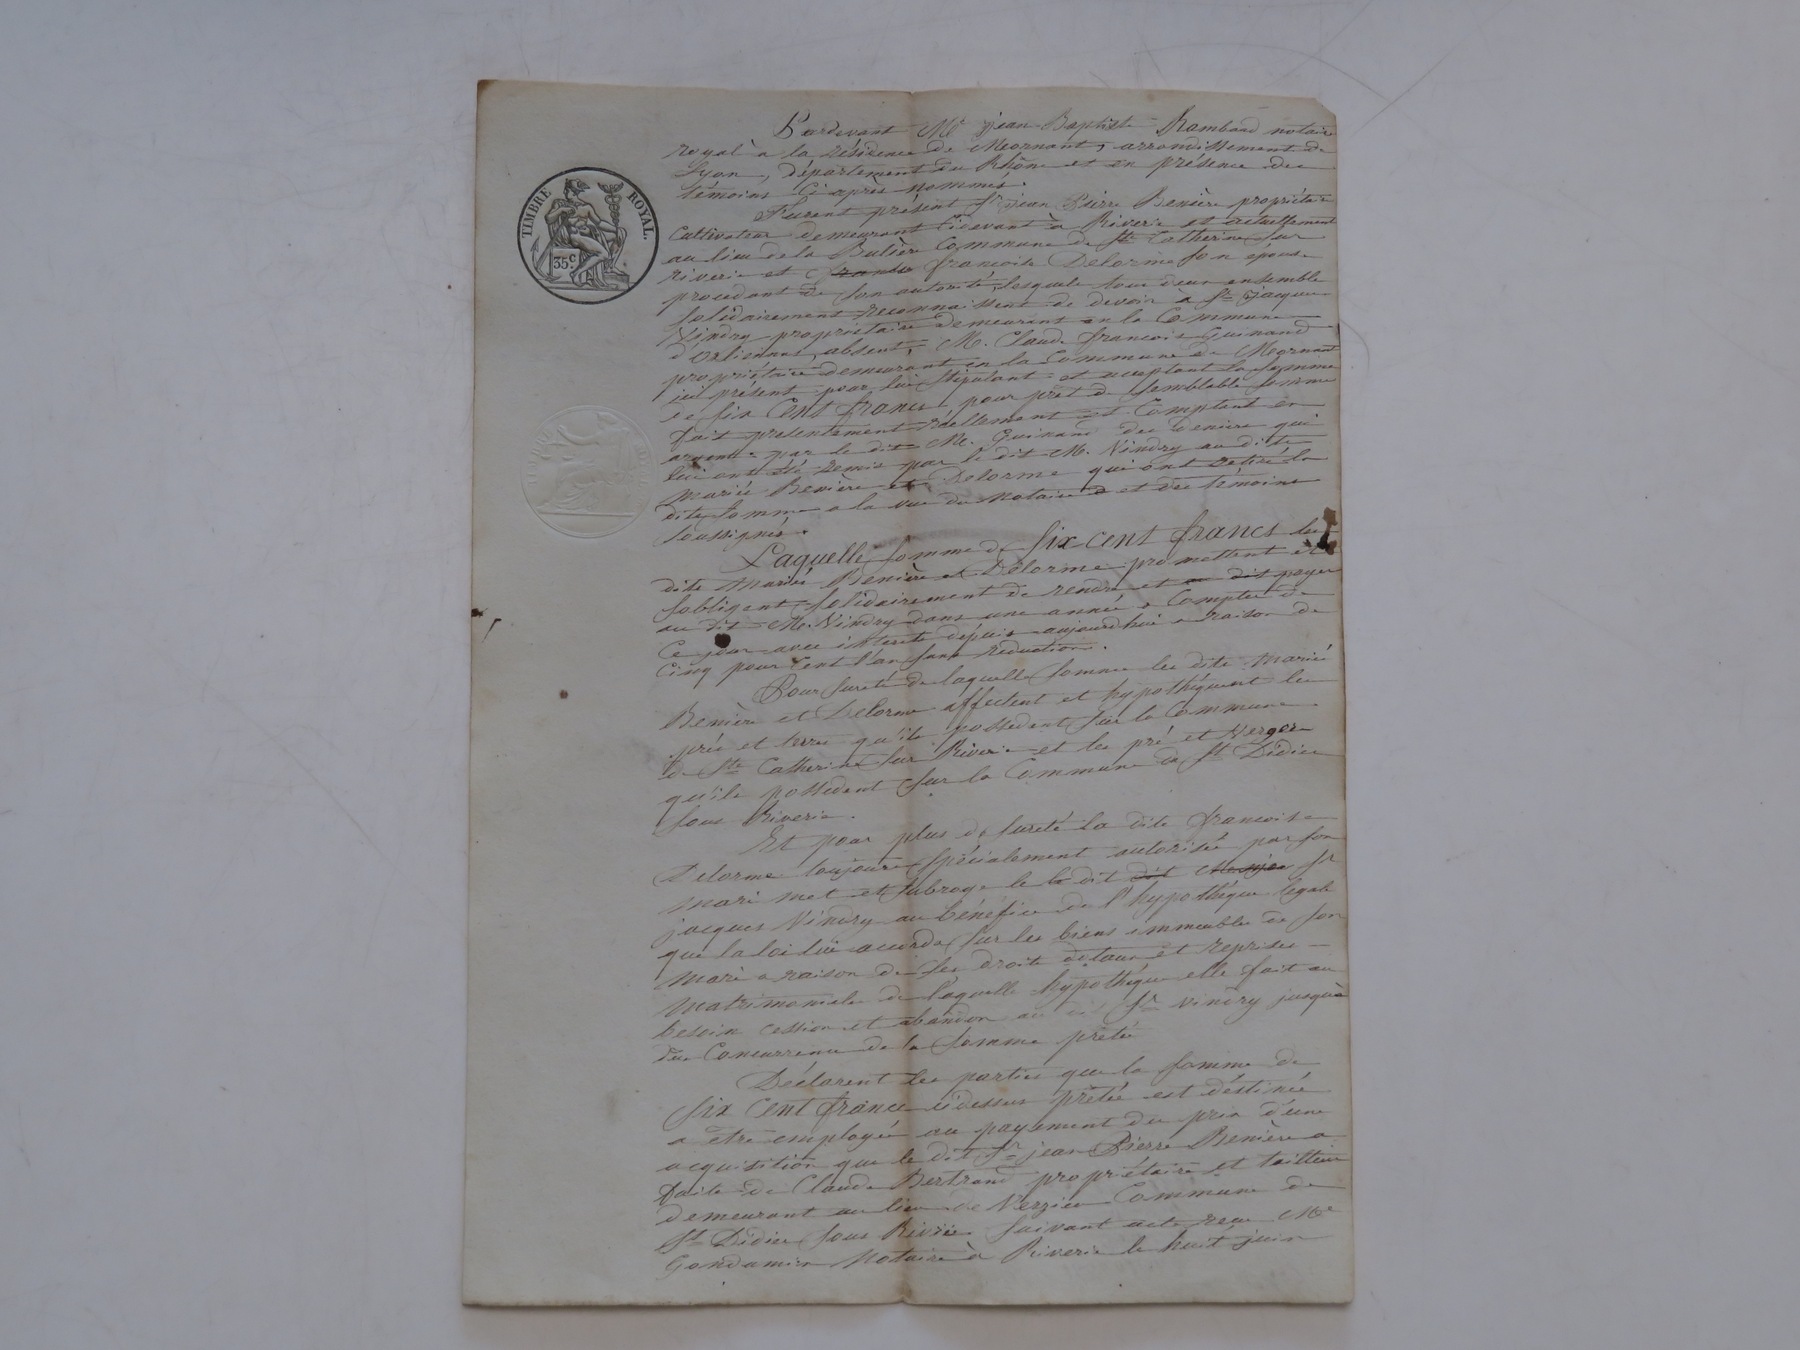 TIMBRE ROYAL.
35 C.
Pardevant Me jean Baptiste Rambaud notaire
royal a la résidence de Mornant, arrondissement de
Lyon, département du Rhône et en présence des
témoins Ci après nommés.
Furent présent Sr jean Pierre Benière propriétaire
Cultivateur demeurant Cidevant à Riverie et actuellement
au lieu de la Commune de Ste Catherine sur
riverie et francoise Delorme son épouse
procedant de son autorité, lesquels tous deux ensemble
solidairement reconnaissent de devoir à Sr jacques
Vindry propriétaire demeurant en la Commune
d'Orlienas, absent, M. Claude francois Guinand
propriétaire demeurant en la Commune de Mornant
ici présent pour lui stipulant et acceptant la somme
de six Cent francs, pour prêt de semblable somme
fait presentement réellement et Comptant en
argent par le dit M. Guinand des deniers qui
lui ont été remis par le dit M. Vindry au dits
mariés Benière et Delorme qui ont retiré la
dite somme a la vue du notaire et des témoins
soussignés.
Laquelle somme de six cent francs les
dits mariés Benière et Delorme promettent et
sobligent solidairement de rendre et payer
au dit M. Vindry dans une année a Compter de
Ce jour avec interets depuis aujourdhui a raison de
Cinq pour Cent l'an sans reduction.
Pour sureté de laquelle somme les dits mariés
Benière et Delorme affectent et hypothéquent les
prés et terres qu'ils possedent sur la Commune
de Ste Catherine sur Riverie et les pré et Verger
qu'ils possedent sur la Commune de St Didier
sous Riverie.
Et pour plus de sureté la dite francoise
Delorme toujours spécialement autorisée par son
mari met et subroge le dit Sr
jacques Vindry au bénéfice de l'hypothéque legale
que la loi lui accorde sur les biens immeubles de son
mari a raison de ses droits dotaux et reprises
matrimoniales de laquelle hypothéque elle fait au
besoin cession et abandon au dit Sr Vindry jusquà
due Concurrence de la somme prêtée
Déclarent les parties que la somme de
six cent francs cidessus prêtée est déstinée
a être employée au payement du prix d'une
acquisition que le dit Sr jean Pierre Benière a
faite de Claude Bertrand propriétaire et tailleur
demeurant au lieu de Verzieu Commune de
St Didier sous Riverie suivant acte recu Me
Gondamin Notaire à Riverie le huit juin